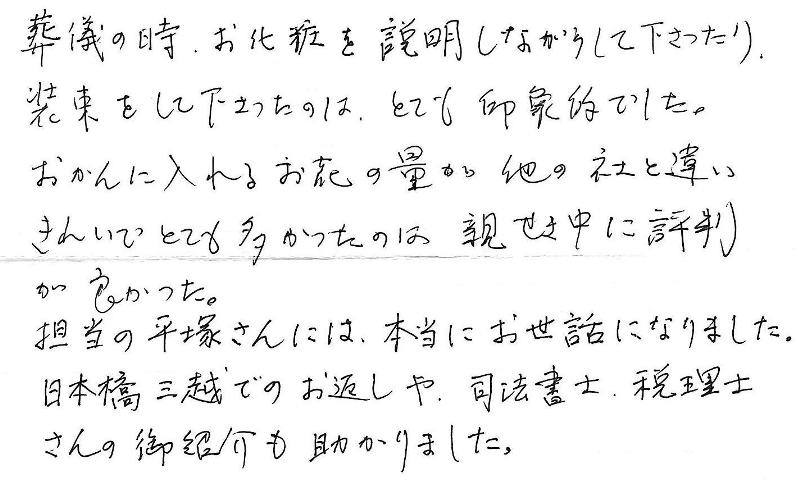 葬儀の時、お化粧を説明しながらして下さったり、
装束をして下さったのは、とても印象的でした。
おかんに入れるお花の量が他の社と違い
きれいでとても多かったのは親せき中に評判
が良かった。
担当の平塚さんには、本当にお世話になりました。
日本橋三越でのお返しや、司法書士、税理士
さんの御紹介も助かりました。